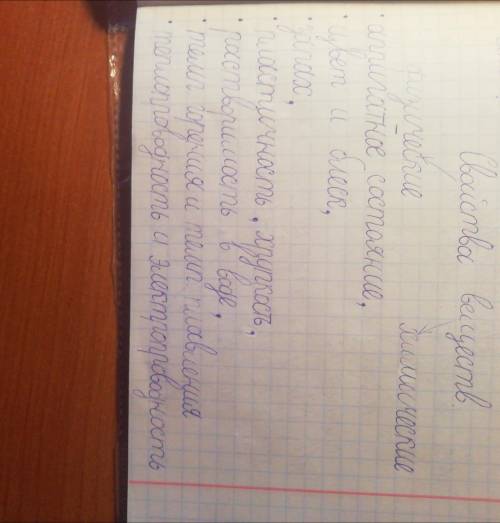 Свойства веществ.
физические химические
· агрегатное состояние,
· цвет и блеск,
· запах,
· пластичность, хрупкость,
· растворимость в воде,
· темп. горения и темп. плавления
· теплопроводность и электропроводность